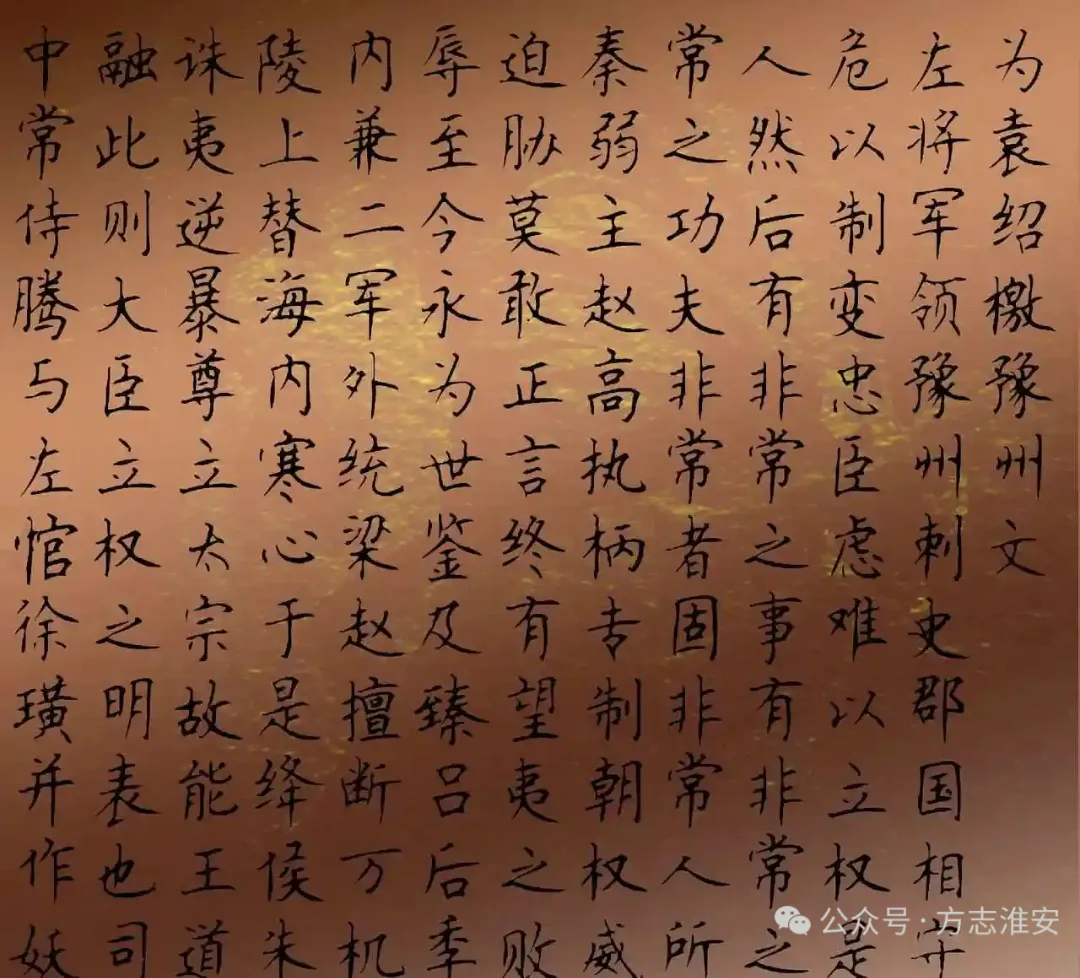 为袁绍檄豫州文
左将军领豫州刺史郡国相守
危以制变忠臣虑难以立权是
人然后有非常之事有非常之
常之功夫非常者固非常人所
秦弱主赵高执柄专制朝权威
迫胁莫敢正言终有望夷之败
辱至今永为世鉴及臻吕后季
内兼二军外统梁赵擅断万机
陵上替海内寒心于是绛侯朱
诛夷逆暴尊立太宗故能王道
融此则大臣立权之明表也司
中常侍腾与左悺徐璜并作妖
公众号·方志淮安